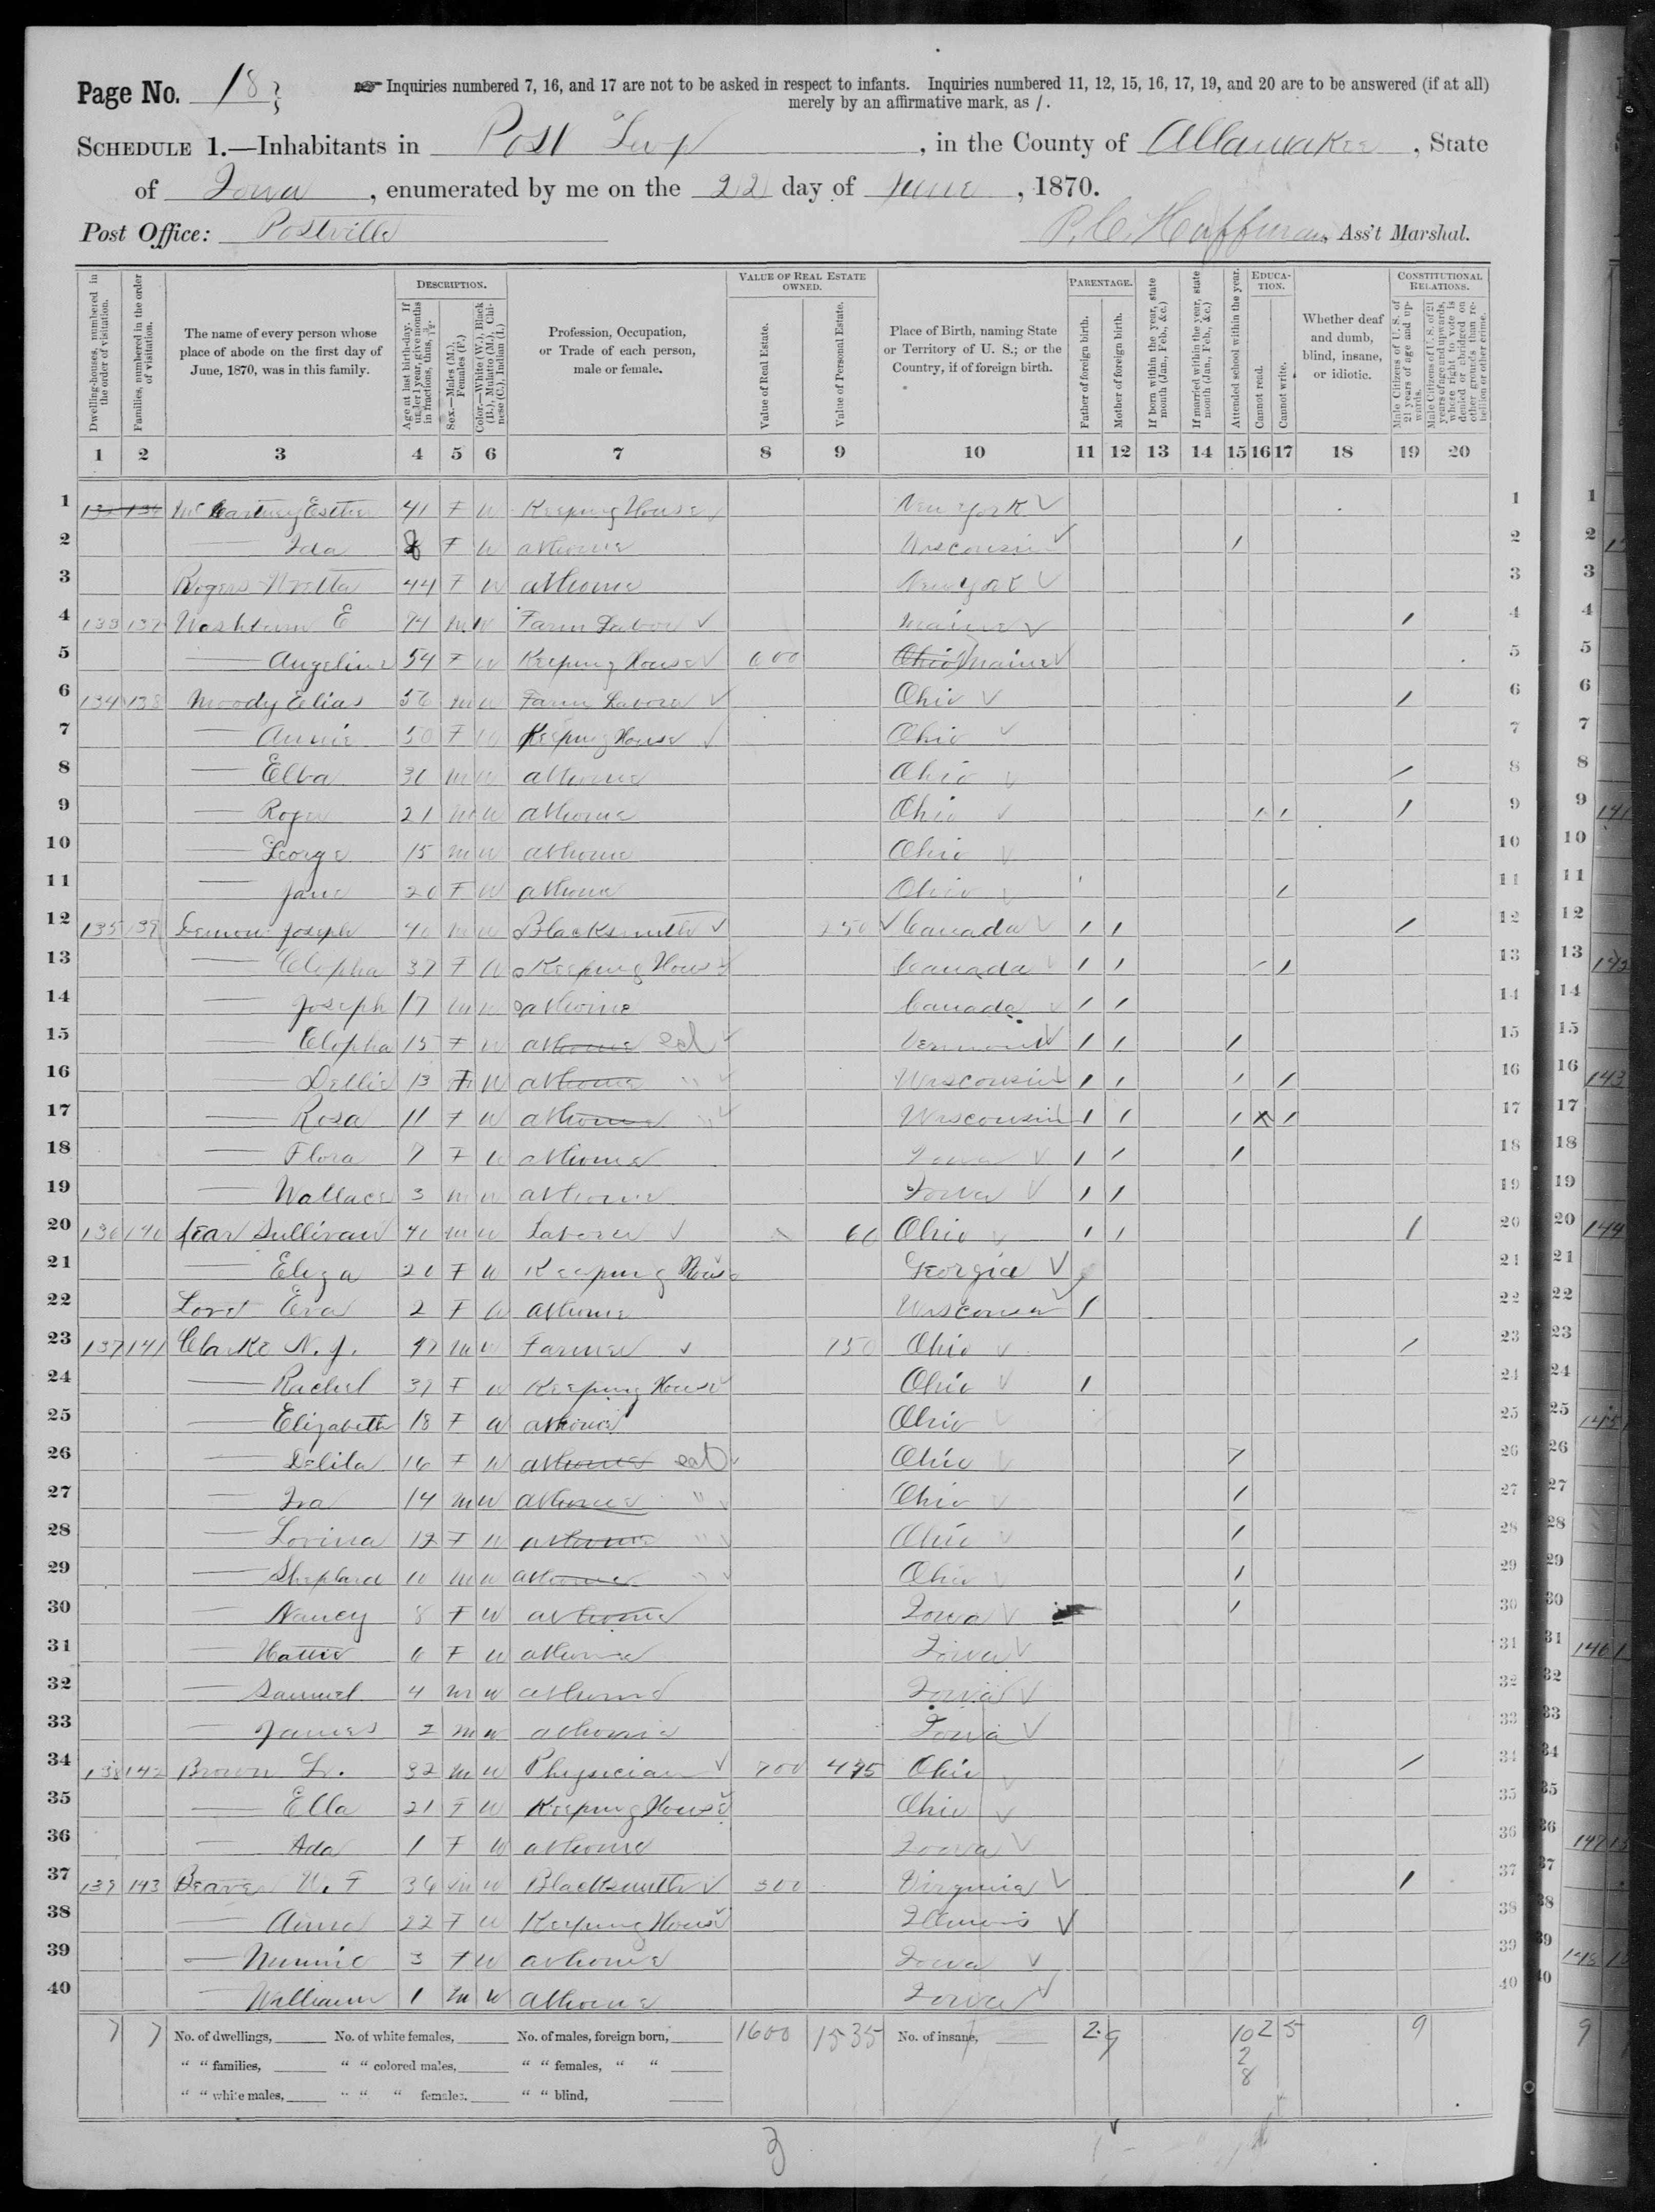 Page No. 18
Inquiries numbered 7, 16, and 17 are not to be asked in respect to infants. Inquiries numbered 11, 12, 15, 16, 17, 19, and 20 are to be answered (if at all)
merely by an affirmative mark, as /.
SCHEDULE 1.—Inhabitants in Post Twp, in the County of Allamakee, State
of Iowa, enumerated by me on the 22 day of June, 1870.
Post Office: Postville
P. C. Huffman, Ass't Marshal.
Dwelling-houses, numbered in the order of visitation.
Families, numbered in the order of visitation.
The name of every person whose place of abode on the first day of June, 1870, was in this family.
DESCRIPTION.
Age at last birth-day. If under 1 year, give months in fractions, thus, 3/12.
Sex.—Males (M.), Females (F.)
Color.—White (W.), Black (B.), Mulatto (M.), Chinese (C.), Indian (I.)
Profession, Occupation, or Trade of each person, male or female.
VALUE OF REAL ESTATE OWNED.
Value of Real Estate.
Value of Personal Estate.
Place of Birth, naming State or Territory of U. S.; or the Country, if of foreign birth.
PARENTAGE.
Father of foreign birth.
Mother of foreign birth.
If born within the year, state month (Jan., Feb., &c.)
If married within the year, state month (Jan., Feb., &c.)
Attended school within the year.
EDUCATION.
Cannot read.
Cannot write.
Whether deaf and dumb, blind, insane, or idiotic.
CONSTITUTIONAL RELATIONS.
Male Citizens of U. S. of 21 years of age and upwards.
Male Citizens of U. S. of 21 years of age and upwards, where right to vote is denied or abridged on other grounds than rebellion or other crime.
1 2 3 4 5 6 7 8 9 10 11 12 13 14 15 16 17 18 19 20
1 McCartney Esther 41 F W Keeping House New York 1
2 — Ida F W at home Wisconsin / 2
3 Rogers 44 F W at home New York 3
4 133 137 Washburn E 74 M W Farm Labor Maine / 4
5 — Angeline 54 F W Keeping House 600 Ohio Maine 5
6 134 138 Moody Elias 56 M W Farm Labor Ohio / 6
7 — Annie 50 F W Keeping House Ohio 7
8 — Elba 30 M W at home Ohio / 8
9 — Roger 21 M W at home Ohio / / / 9
10 — George 15 M W at home Ohio 10
11 — Jane 20 F W at home Ohio / 11
12 135 139 Joseph 40 M W Blacksmith 250 Canada / / / 12
13 — Clopha 37 F W Keeping House Canada / / / / 13
14 — Joseph 17 M W at home Canada / / 14
15 — Clopha 15 F W at home Vermont / / / 15
16 — Dellie 13 F W at home " Wisconsin / / / / 16
17 — Rosa 11 F W at home " Wisconsin / / / X / 17
18 — Flora 7 F W at home Iowa / / / 18
19 — Wallace 3 M W at home Iowa / / 19
20 136 140 Sullivan 40 M W Laborer 60 Ohio / / / 20
21 — Eliza 20 F W Keeping House Georgia 21
22 Lord Eva 2 F W at home Wisconsin / 22
23 137 141 Clarke N. J. 47 M W Farmer 750 Ohio / 23
24 — Rachel 39 F W Keeping House Ohio / 24
25 — Elizabeth 18 F W at home Ohio 25
26 — Delila 16 F W at home Ohio / 26
27 — Ira 14 M W at home " Ohio / 27
28 — Lovina 12 F W at home " Ohio / 28
29 — Shephard 10 M W at home " Ohio / 29
30 — Nancy 8 F W at home Iowa / 30
31 — Hattie 6 F W at home Iowa 31
32 — Samuel 4 M W at home Iowa 32
33 — James 2 M W at home Iowa 33
34 138 142 Brown L. 32 M W Physician 700 475 Ohio / 34
35 — Ella 21 F W Keeping House Ohio 35
36 — Ada 1 F W at home Iowa 36
37 139 143 Beaver W. F 36 M W Blacksmith 300 Virginia / 37
38 — Anna 22 F W Keeping House Illinois 38
39 — Minnie 3 F W at home Iowa 39
40 — William 1 M W at home Iowa 40
7 7 No. of dwellings, No. of white females, No. of males, foreign born, 1600 1535 No. of insane, 2 9 10 2 5 9
" " families, " " colored males, " " females, " " 2
" " white males, " " " females, " " blind, 8
3